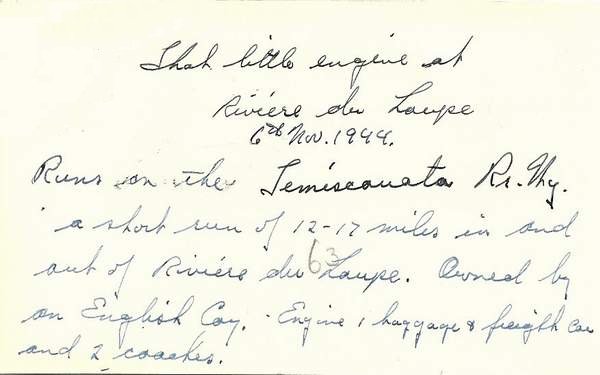 That little engine at
Riviére du Loupe
6th Nov. 1944.
Runs on the Temiscouata Rr. Wy.
a short run of 12-17 miles in and
63
out of Riviére du Loupe. Owned by
an English Coy. Engine 1 baggage & freight Car
and 2 coaches.